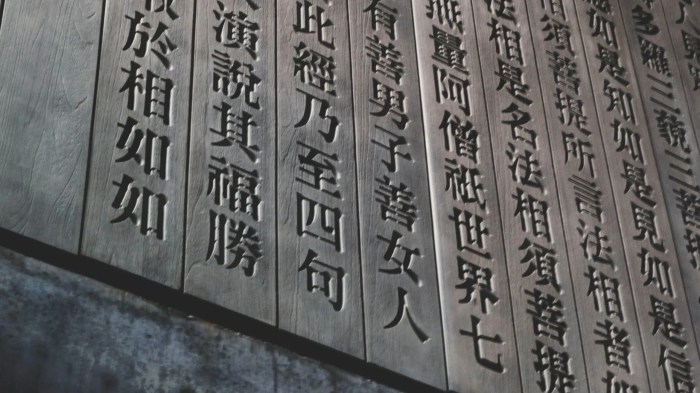 多羅三藐三菩提
如是知如是見如是信
相須菩提所言法相者如
法相是名法相須菩提
無量阿僧祇世界七
有善男子善女人
此經乃至四句
演說其福勝
於相如如